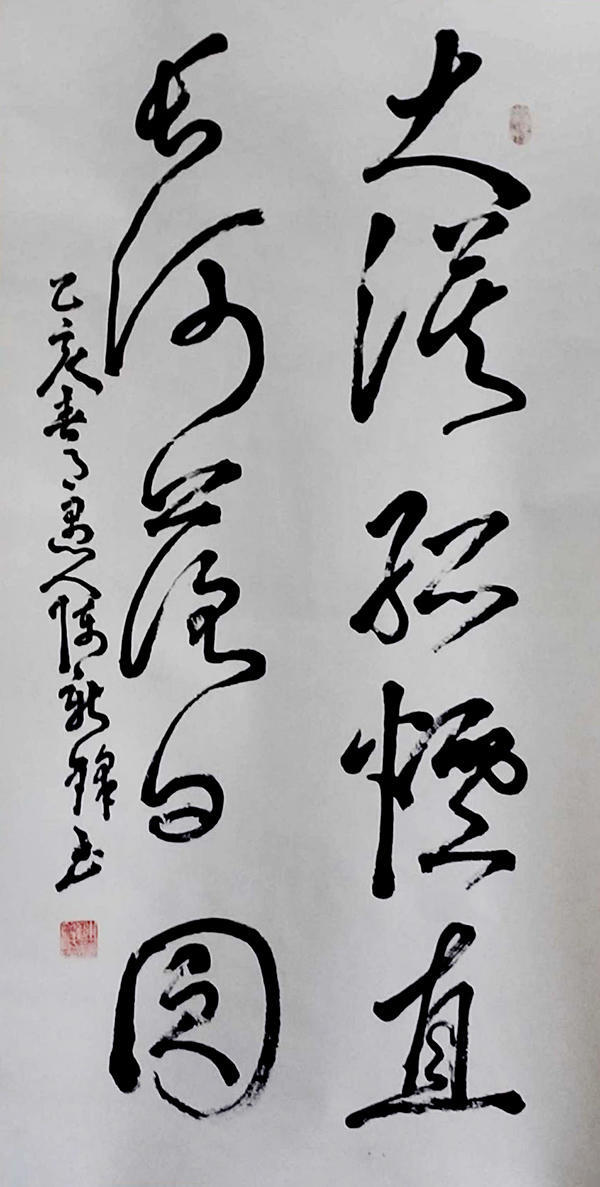 大漠孤煙直
長河落日圓
乙亥春月愚人陈新鋒书